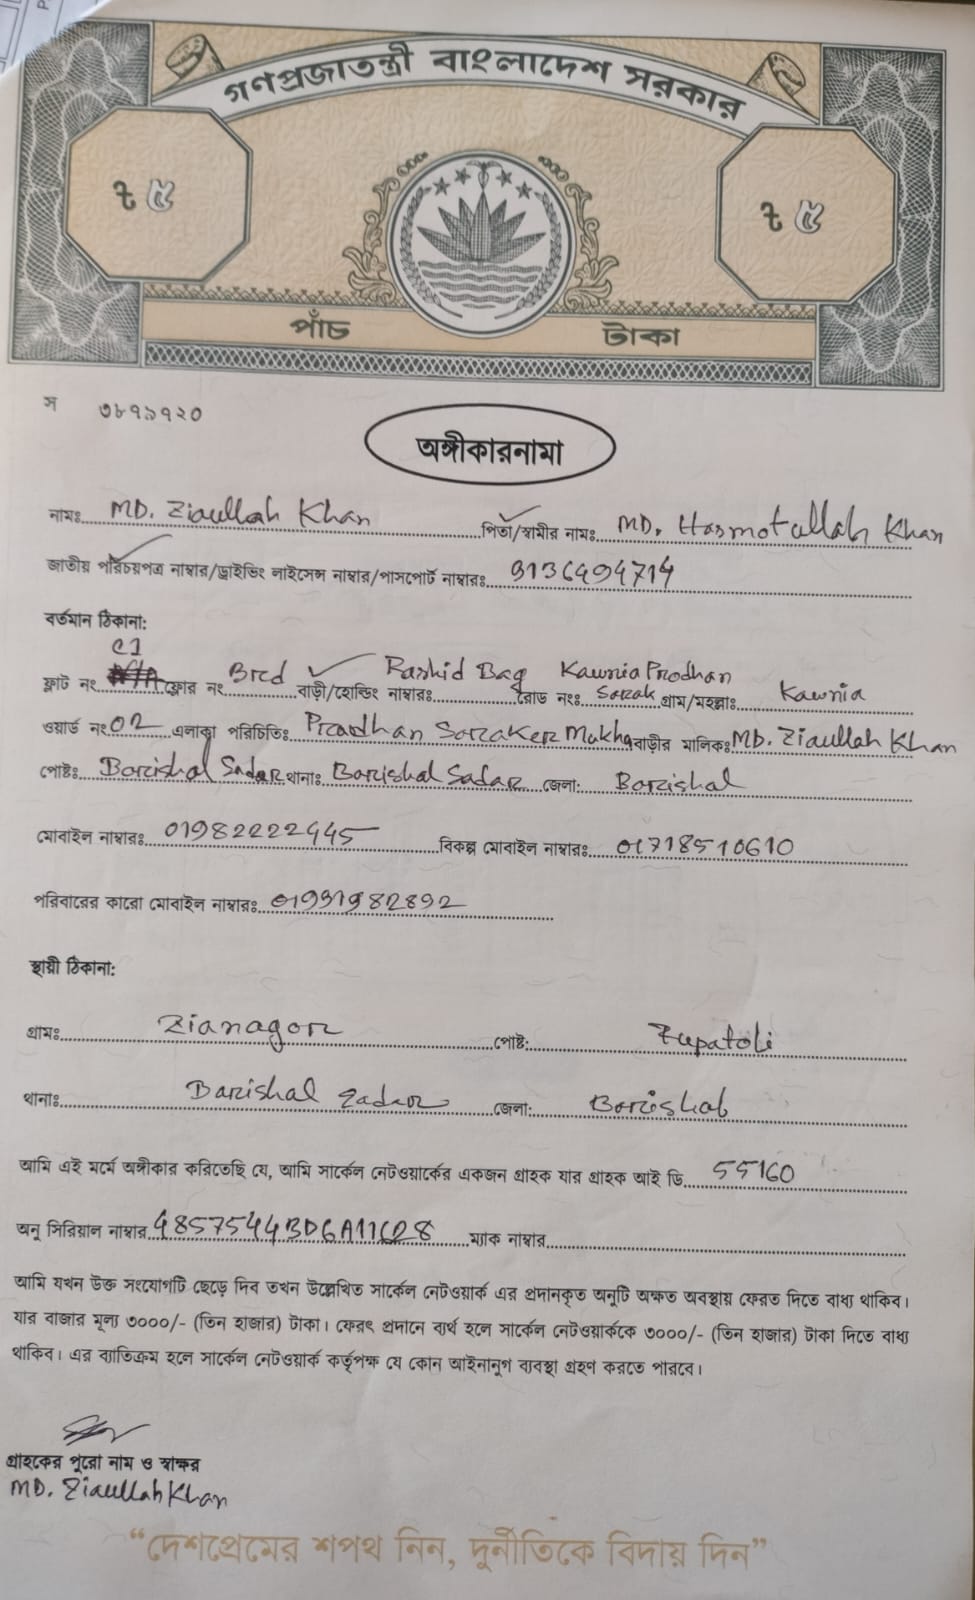 গণপ্রজাতন্ত্রী বাংলাদেশ সরকার
৳ ৫ ৳ ৫
পাঁচ টাকা
স ৩৮৭৯৭২০
অঙ্গীকারনামা
নামঃ MD. Ziaullah Khan পিতা/স্বামীর নামঃ MD. Hasmotullah Khan
জাতীয় পরিচয়পত্র নাম্বার/ড্রাইভিং লাইসেন্স নাম্বার/পাসপোর্ট নাম্বারঃ
বর্তমান ঠিকানা:
ফ্লাট নং ফ্লোর নং 3rd বাড়ী/হোল্ডিং নাম্বারঃ Rashid Bag রোড নংঃ Kawnia Prodhan Sarak গ্রাম/মহল্লাঃ Kawnia
ওয়ার্ড নংঃ 02 এলাকা পরিচিতিঃ Praodhan Saraker Mukh বাড়ীর মালিকঃ MD. Ziaullah Khan
পোষ্টঃ Barishal Sadar থানাঃ Barishal Sadar জেলা: Barishal
মোবাইল নাম্বারঃ 01982222445 বিকল্প মোবাইল নাম্বারঃ 01718510610
পরিবারের কারো মোবাইল নাম্বারঃ
স্থায়ী ঠিকানা:
গ্রামঃ Zianagor পোষ্ট: Rupatoli
থানাঃ Barishal Sadar জেলা: Barishal
আমি এই মর্মে অঙ্গীকার করিতেছি যে, আমি সার্কেল নেটওয়ার্কের একজন গ্রাহক যার গ্রাহক আই ডি 55160
অনু সিরিয়াল নাম্বার 48575443BD6A11C28 ম্যাক নাম্বার
আমি যখন উক্ত সংযোগটি ছেড়ে দিব তখন উল্লেখিত সার্কেল নেটওয়ার্ক এর প্রদানকৃত অনুটি অক্ষত অবস্থায় ফেরত দিতে বাধ্য থাকিব।
যার বাজার মূল্য ৩০০০/- (তিন হাজার) টাকা। ফেরৎ প্রদানে ব্যর্থ হলে সার্কেল নেটওয়ার্ককে ৩০০০/- (তিন হাজার) টাকা দিতে বাধ্য
থাকিব। এর ব্যতিক্রম হলে সার্কেল নেটওয়ার্ক কর্তৃপক্ষ যে কোন আইনানুগ ব্যবস্থা গ্রহণ করতে পারবে।
গ্রাহকের পুরো নাম ও স্বাক্ষর
MD. Ziaullah Khan
“দেশপ্রেমের শপথ নিন, দুর্নীতিকে বিদায় দিন”